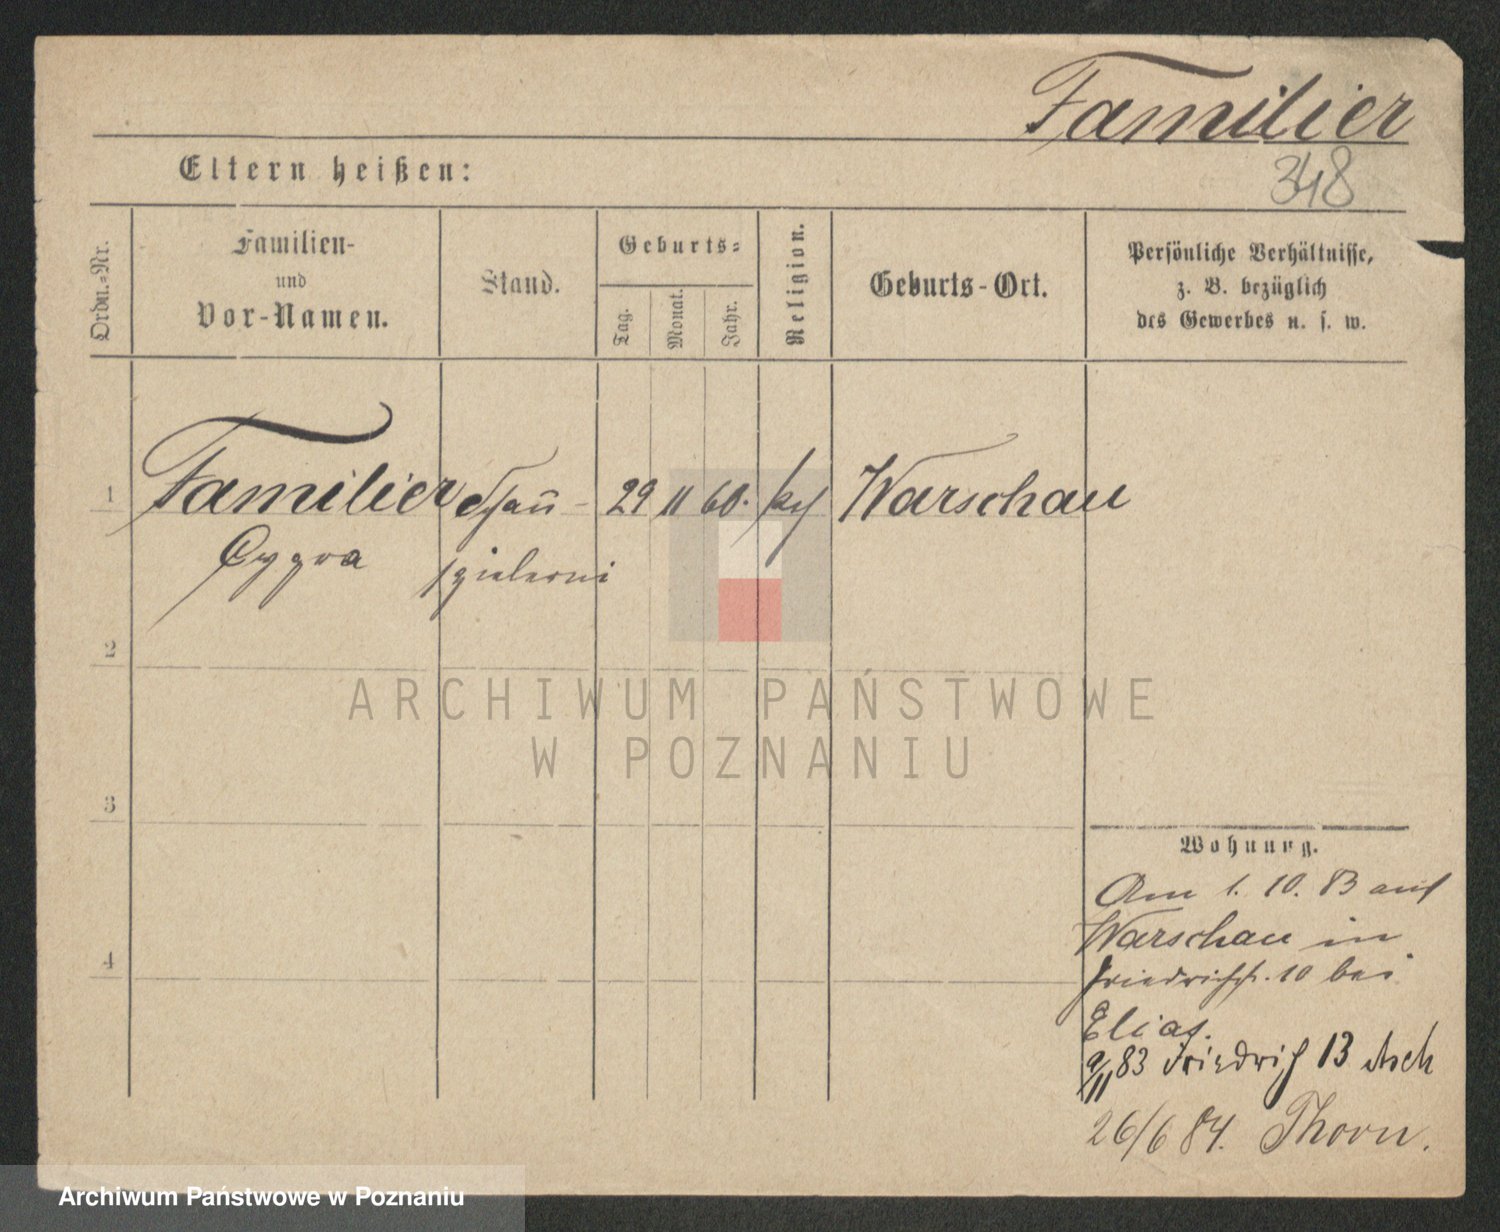 Familier
348
Eltern heißen:
Ordn.-Nr.
Familien-
und
Vor-Namen.
Stand.
Geburts-
Tag.
Monat.
Jahr.
Religion.
Geburts-Ort.
Persönliche Verhältnisse,
z. B. bezüglich
des Gewerbes u. s. w.
1
Familier Schau- 29 11 60. Warschau
spielerin
2
ARCHIWUM PAŃSTWOWE
W POZNANIU
3
Wohnung.
Am 1. 10. 83 aus
Warschau in
Friedrichstr. 10 bei
Elias.
9/11 83 Friedrich 13 Asch
4
26/6 84. Thorn.
Archiwum Państwowe w Poznaniu